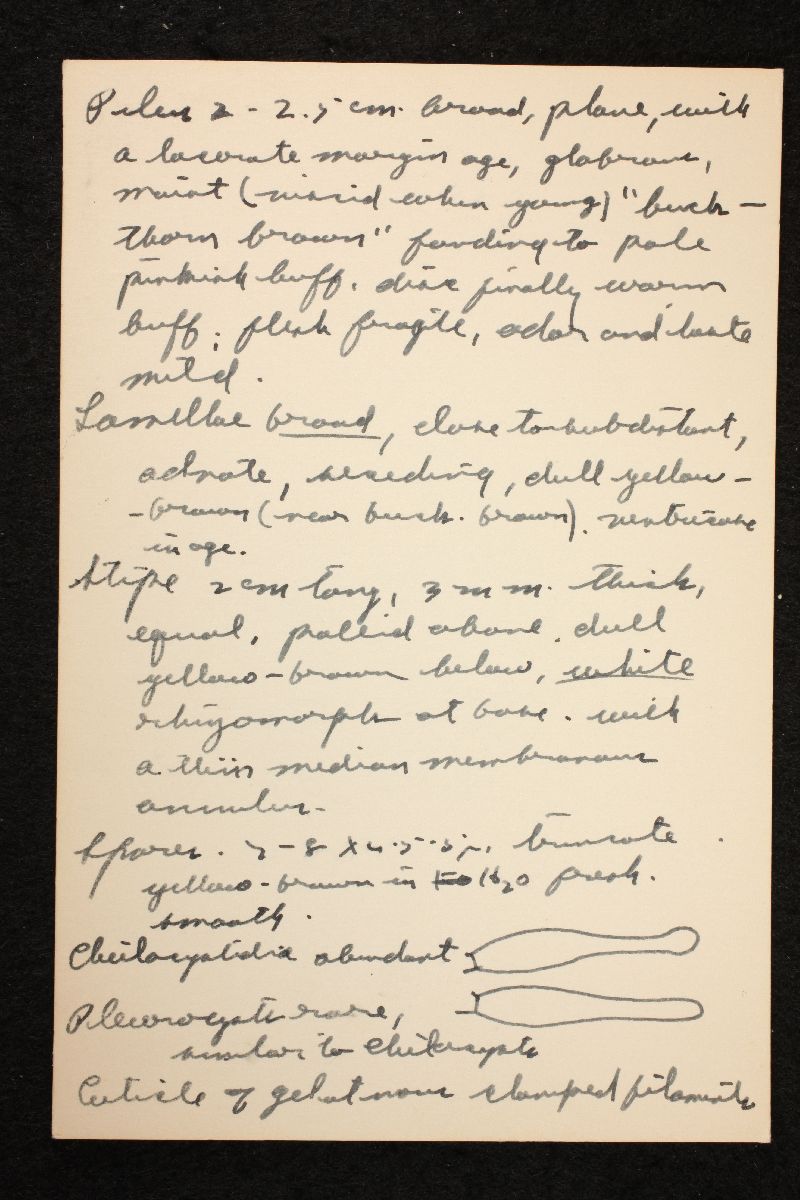 Pileus 2 - 2.5 cm. broad, plane, with
a lacerate margin age, glabrous,
moist (viscid when young) "buck-
thorn brown" fanding to pale
pinkish buff. disc finally warm
buff; flesh fragile, odor and taste
mild.
Lamellae broad, close to subdistant,
adnate, seceding, dull yellow-
-brown (near buck. brown). ventricose
in age.
Stipe 2 cm long, 3 mm. thick,
equal, pallid above, dull
yellow-brown below, white
rhizomorph at base. with
a thin median membranous
annulus-
Spores. 7-8 x 4.5-5μ, truncate
yellow-brown in H2O fresh.
smooth.
Cheilocystidia abundant
Pleurocysti rare,
similar to Cheilocysts
Cuticle of gelatinous clamped filaments